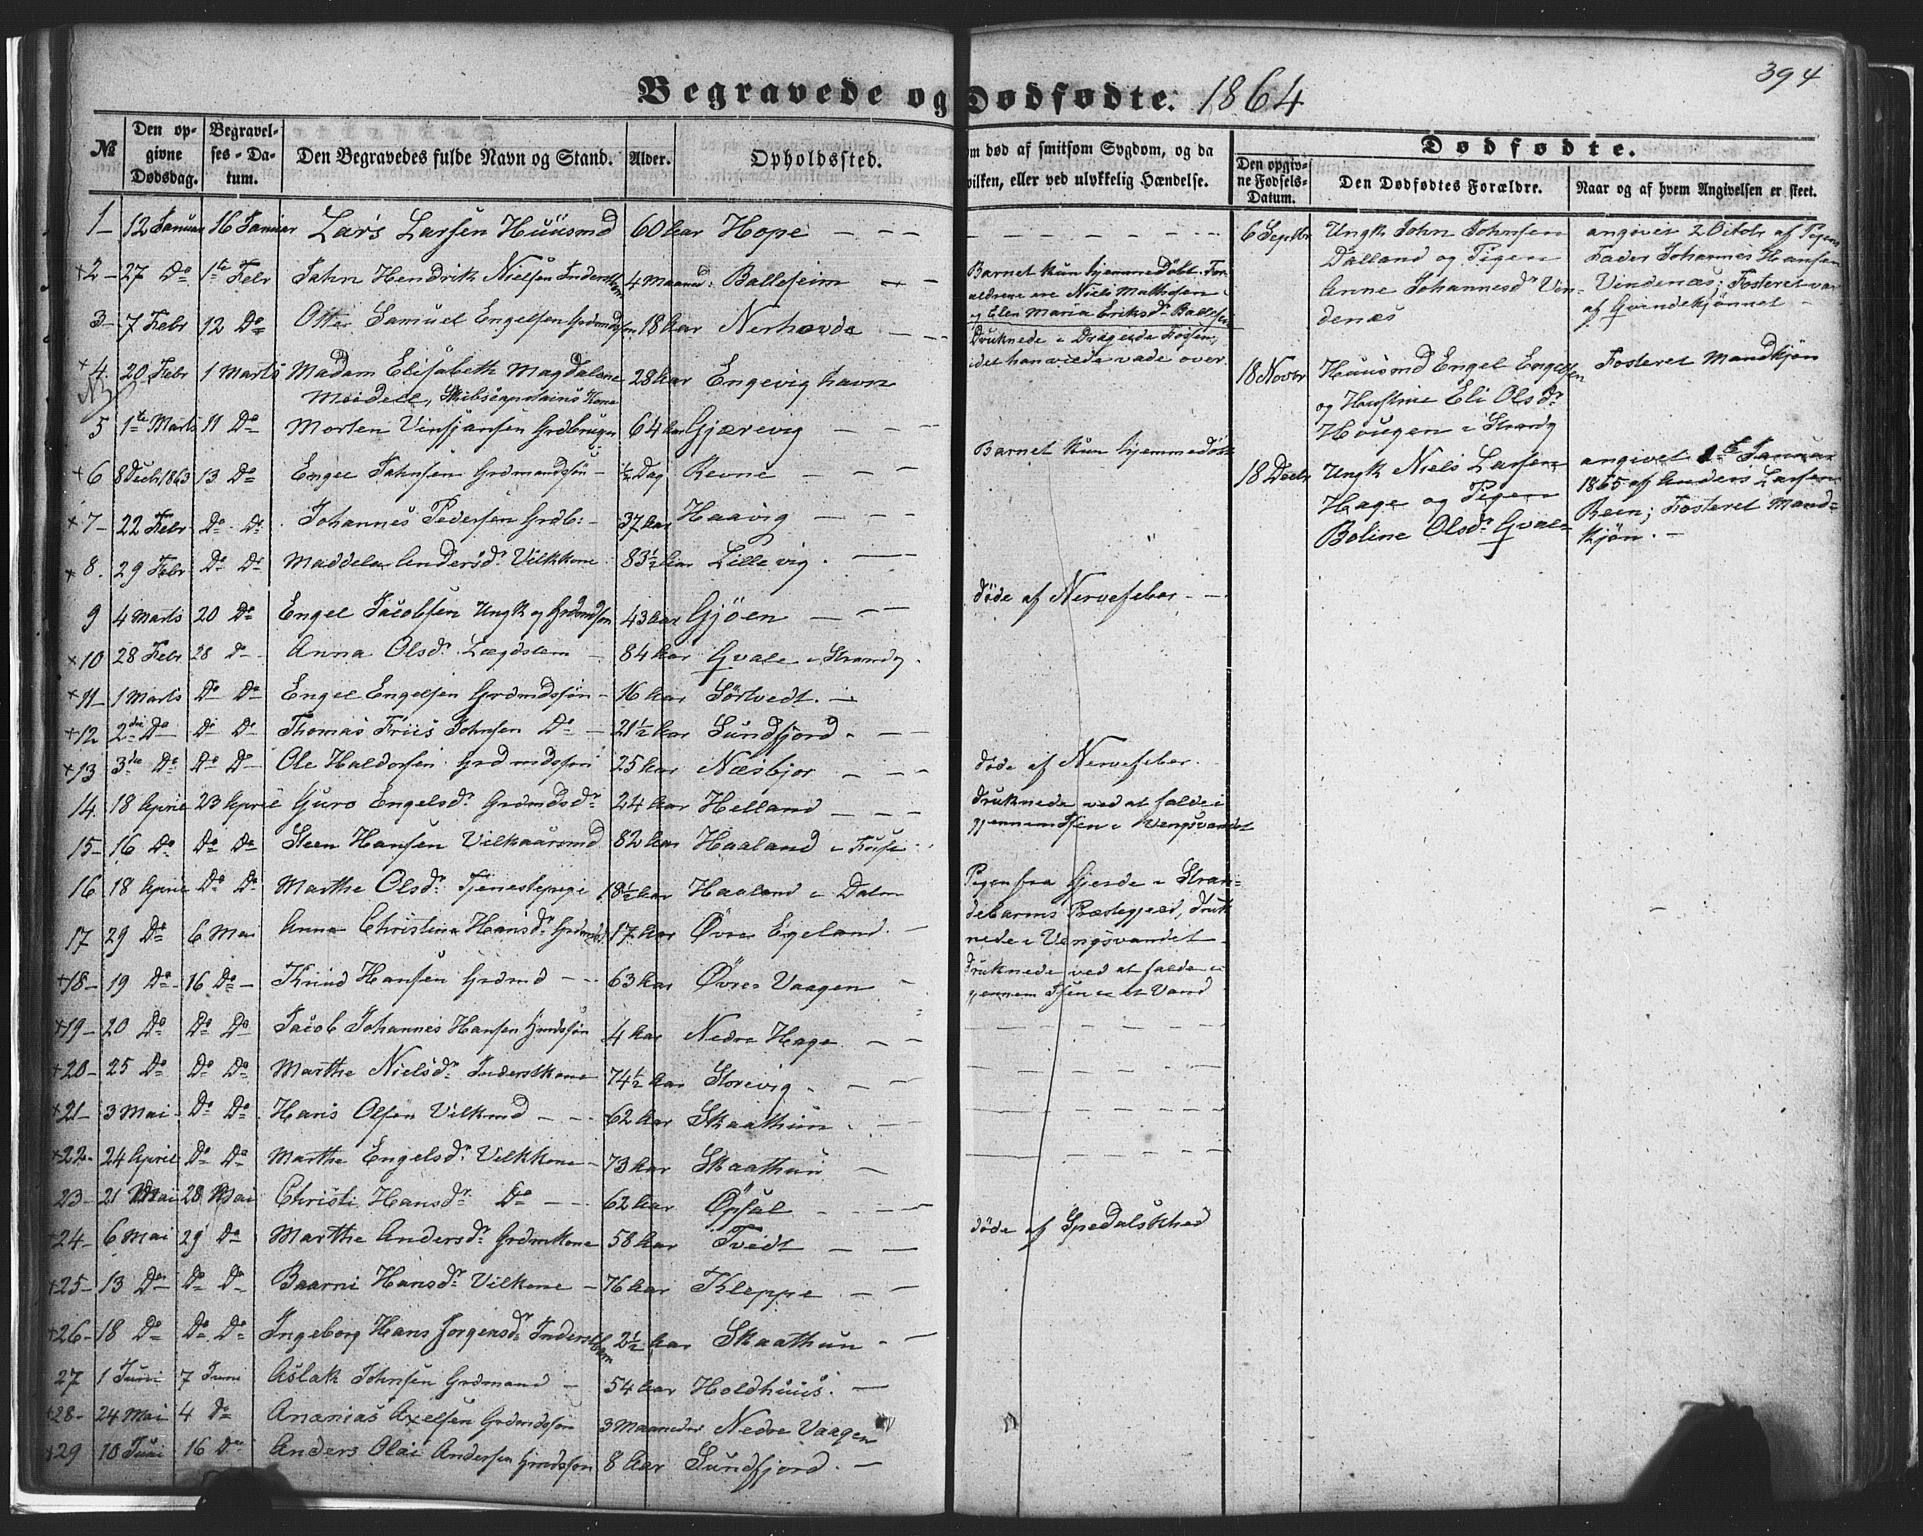 394
Begravede og Dødfødte. 1864
№
Den opgivne Dødsdag.
Begravelses-Datum.
Den Begravedes fulde Navn og Stand.
Alder.
Opholdssted.
om død af smitsom Sygdom, og da
vilken, eller ved ulykkelig Hændelse.
Dødfødte.
Den opgivne Fødsels-Datum.
Den Dødfødtes Forældre.
Naar og af hvem Angivelsen er skeet.
1 12 Januar 16 Januar Lars Larsen Huusmd 60 Aar Hope
2 27 Do 1te Febr Jahn Hendrik Nielsen 4 Maaned: Balleseim
Barnet kun hjemmedöbt. For-
ældrene ere Niels Mathisen
og Elen Maria Eriksdr Ballesei
3 7 Febr 12 Do Otter Samuel Engelsen Grdmdssøn 18 Aar Nerhovde
Druknede i Drageide Fossen,
idet han vilde vade over
4 20 Febr 1 Marts Madam Elisabeth Magdalene 28 Aar Engevig havn
Meidell, Skibscapitains Kone
5 1te Marts 11 Do Morten Vinsjansen Grdbruger 64 Aar Gjærevig
6 8 Decb 1863 13 Do Engel Jahnsen Grdmandssøn ½ Dag Revne
Barnet kun hjemmedöbt
7 22 Febr Do Do Johannes Pedersen Grdb: 37 Aar Haavig
8. 29 Febr Do Do Maddela Andersdr Vilkkone 83½ Aar Lillevig
9 4 Marts 20 Do Engel Jacobsen Ungk og Grdmdssøn 43 Aar Gjöen
döde af Nervefeber
10 28 Febr 28 D Anna Olsdr Lægdslem 84 Aar Gvale i Strandv
11 1 Marts Do Do Engel Engelsen Grdmdssøn 16 Aar Sörtvedt.
12 2den Do Do Do Thomas Friis Johnsen Do 21½ Aar Sundfjord
13 3die Do Do Do Ole Haldorsen Grdmdssøn 25 Aar Næsbjor
döde af Nervefeber.
14. 18 April 23 April Guro Engelsdr Grdmdsdr 24 Aar Helland
druknede ved at falde i
gjennem Isen i Vengsvandet
15 16 Do Do Do Steen Hansen Vilkaarsmd 82 Aar Haaland i Fuse
16 18 April Do Do Marthe Olsdr Tjenestepige 18½ Aar Haaland i Dalen
Pigen fra Gjerde i Stran-
debarms Præstegjeld, druk
nede i Vengsvandet
17 29 Do 6 Mai Anna Christina Hansdr 17 Aar Övre Egeland
18 19 Do 16 Do Knud Hansen Grdmd 63 Aar Övre Vaagen
Druknede ved at falde i
gjennem Isen i et Vand
19 20 Do Do Do Jacob Johannes Hansen Grmdssøn 4 Aar Nedre Hage
20 25 Do Do Do Marthe Nielsdr Inderstkone 74½ Aar Storevig
21 3 Mai Do Do Hans Olsen Vilkmd 62 Aar Skaathun
22 24 April Do Do Marthe Engelsdr Vilkkone 73 Aar Skaathun
23 21 Mai 28 Mai Christi Hansdr Do 62 Aar Öpsal
24 6 Mai 29 Do Marthe Andersdr Grdmkone 58 Aar Tvedt
döde af Spedalskhed
25 13 Do Do Do Baarni Hansdr Vilkone 76 Aar Kleppe
26 18 Do Do Do Ingeborg Hans Jorgensdr Inderstbarn 2½ Aar Skaathun
27 1 Juni 7 Juni Aslak Johnsen Grdmand 54 Aar Holdhuus.
28 24 Mai 4 Do Ananias Axelsen Grdmdssøn 3 Maaneder Nedre Vaagen
29 10 Juni 16 Do Anders Olai Andersen Grmdssøn 8 Aar Sundfjord
6 Septbr
Ungk John Johnsen
Dalland og Pigen
Anne Johannesdr Vin-
denæs
angivet 2 Octobr af Pigens
Fader Johannes Hansen
Vindenæs; Fosteret var
af Qvindekjønnet
18 Novbr
Huusmd Engel Engelsen
og Hustrue Eli Olsdr
Hougen i Strandv
Fosteret Mandkjøn
18 Decbr
Ungk Niels Larsen
Hage og Pigen
Boline Olsdr Gvale
angivet 1te Januar
1865 af Anders Larsen
Reen; Fosteret Mand-
kjøn.